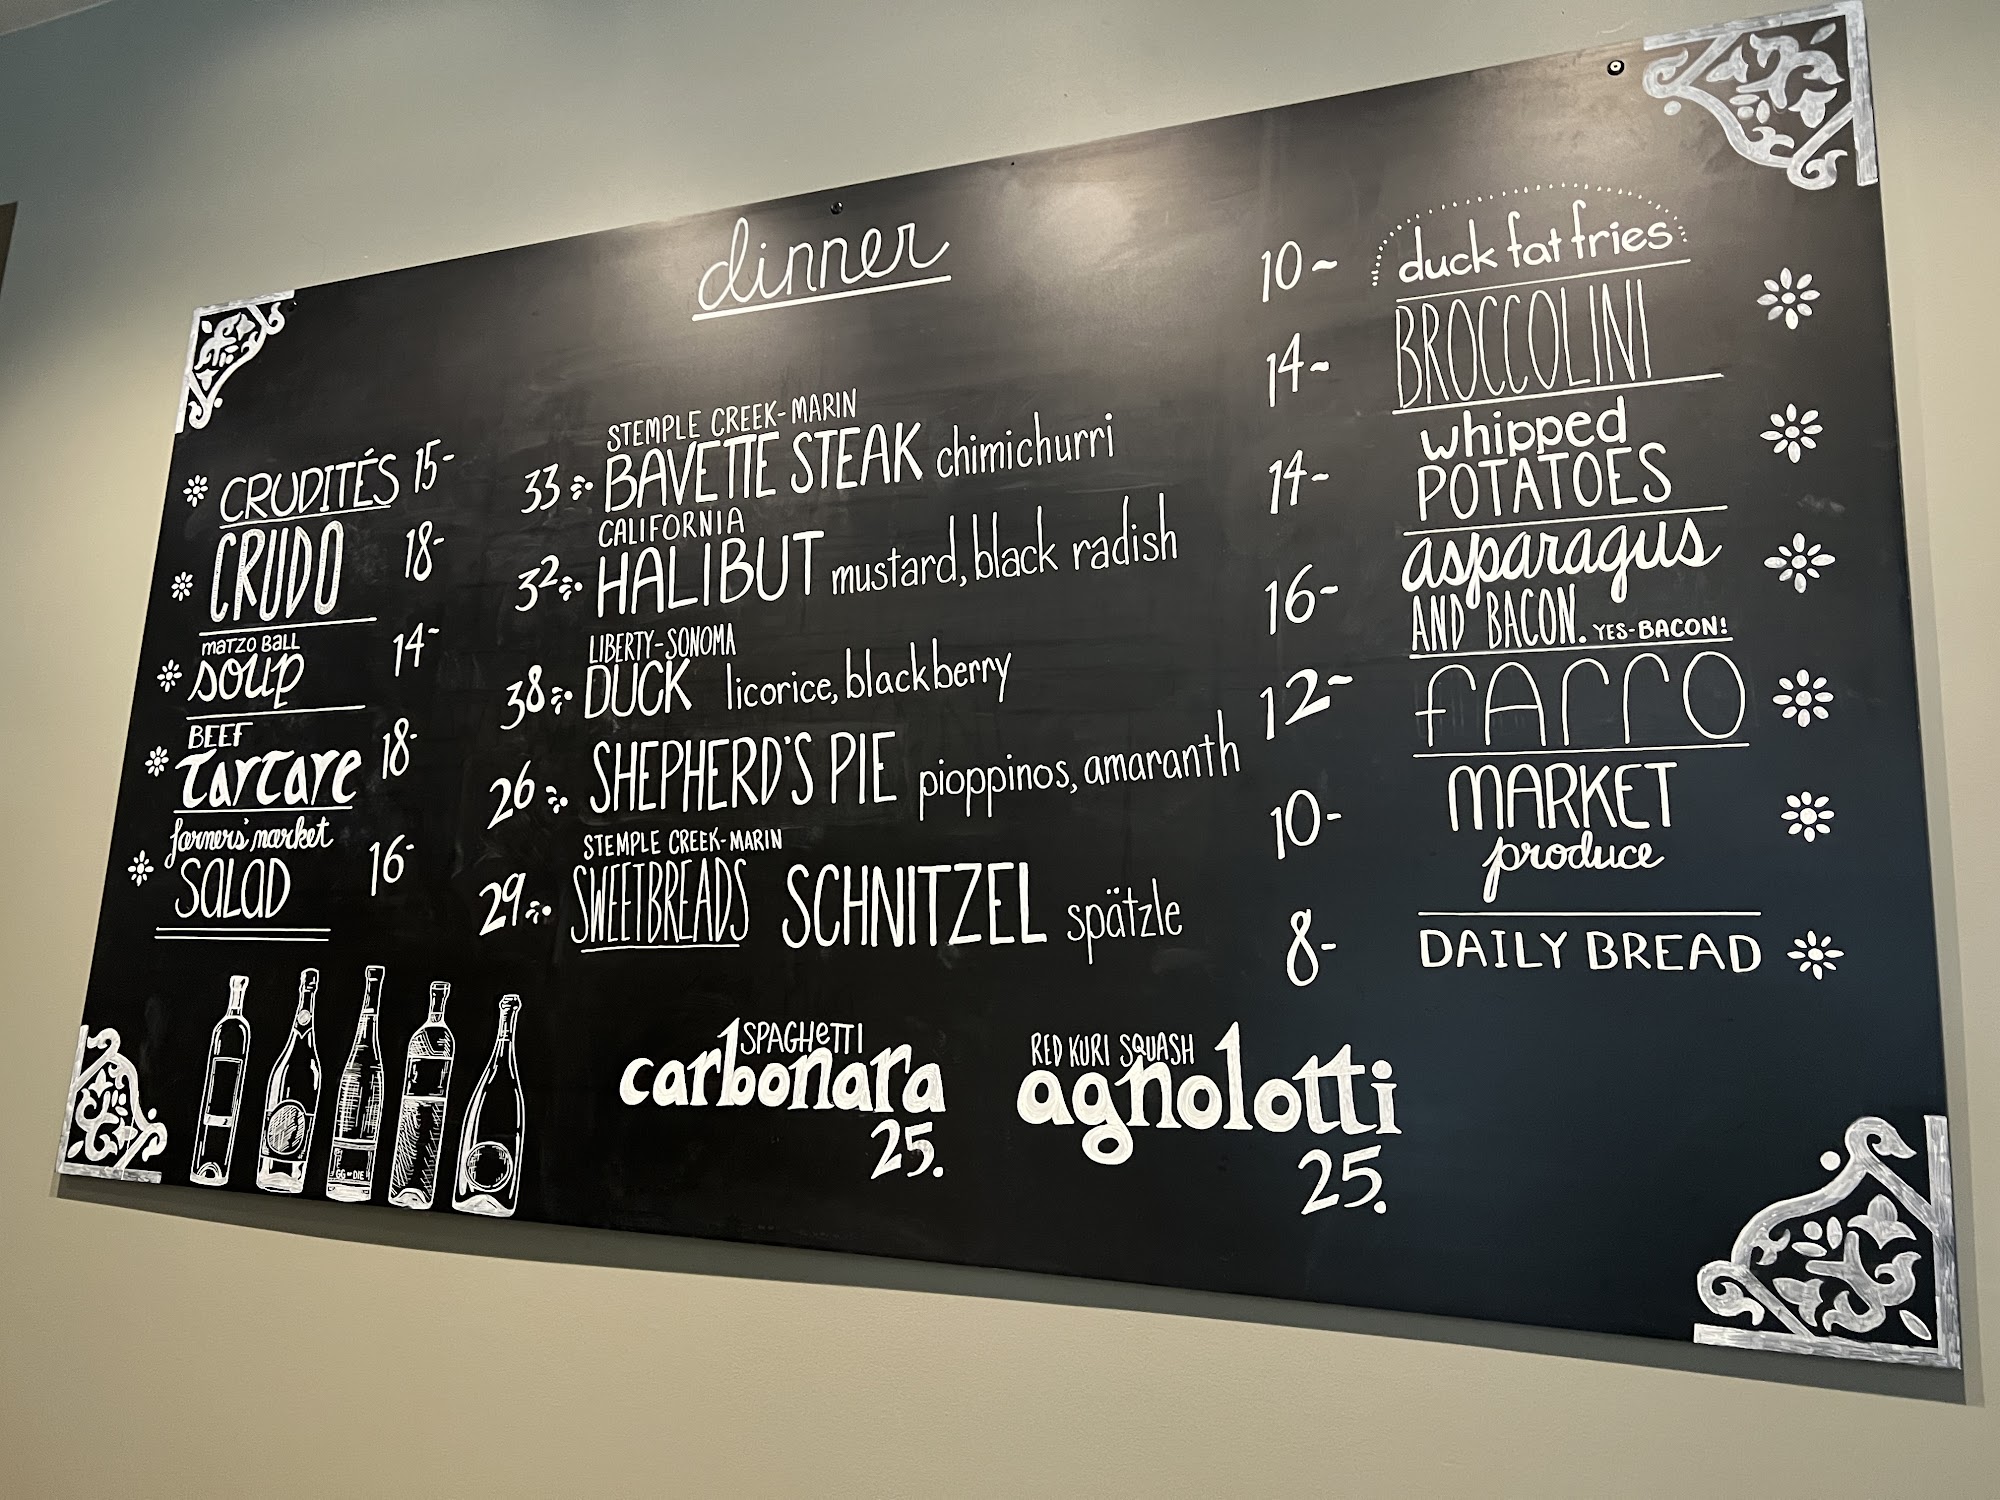 dinner
CRUDITÉS 15-
CRUDO 18-
MATZO BALL
soup 14-
BEEF
tartare 18-
farmers' market
SALAD 16-
STEMPLE CREEK-MARIN
33 BAVETTE STEAK chimichurri
CALIFORNIA
32 HALIBUT mustard, black radish
LIBERTY-SONOMA
38 DUCK licorice, blackberry
26 SHEPHERD'S PIE pioppinos, amaranth
STEMPLE CREEK-MARIN
29 SWEETBREADS SCHNITZEL spätzle
SPAGHETTI
carbonara
25.
RED KURI SQUASH
agnolotti
25.
10~ duck fat fries
14~ BROCCOLINI
whipped
14- POTATOES
asparagus
16- AND BACON. YES-BACON!
12~ fArrO
10- MARKET
produce
8- DAILY BREAD